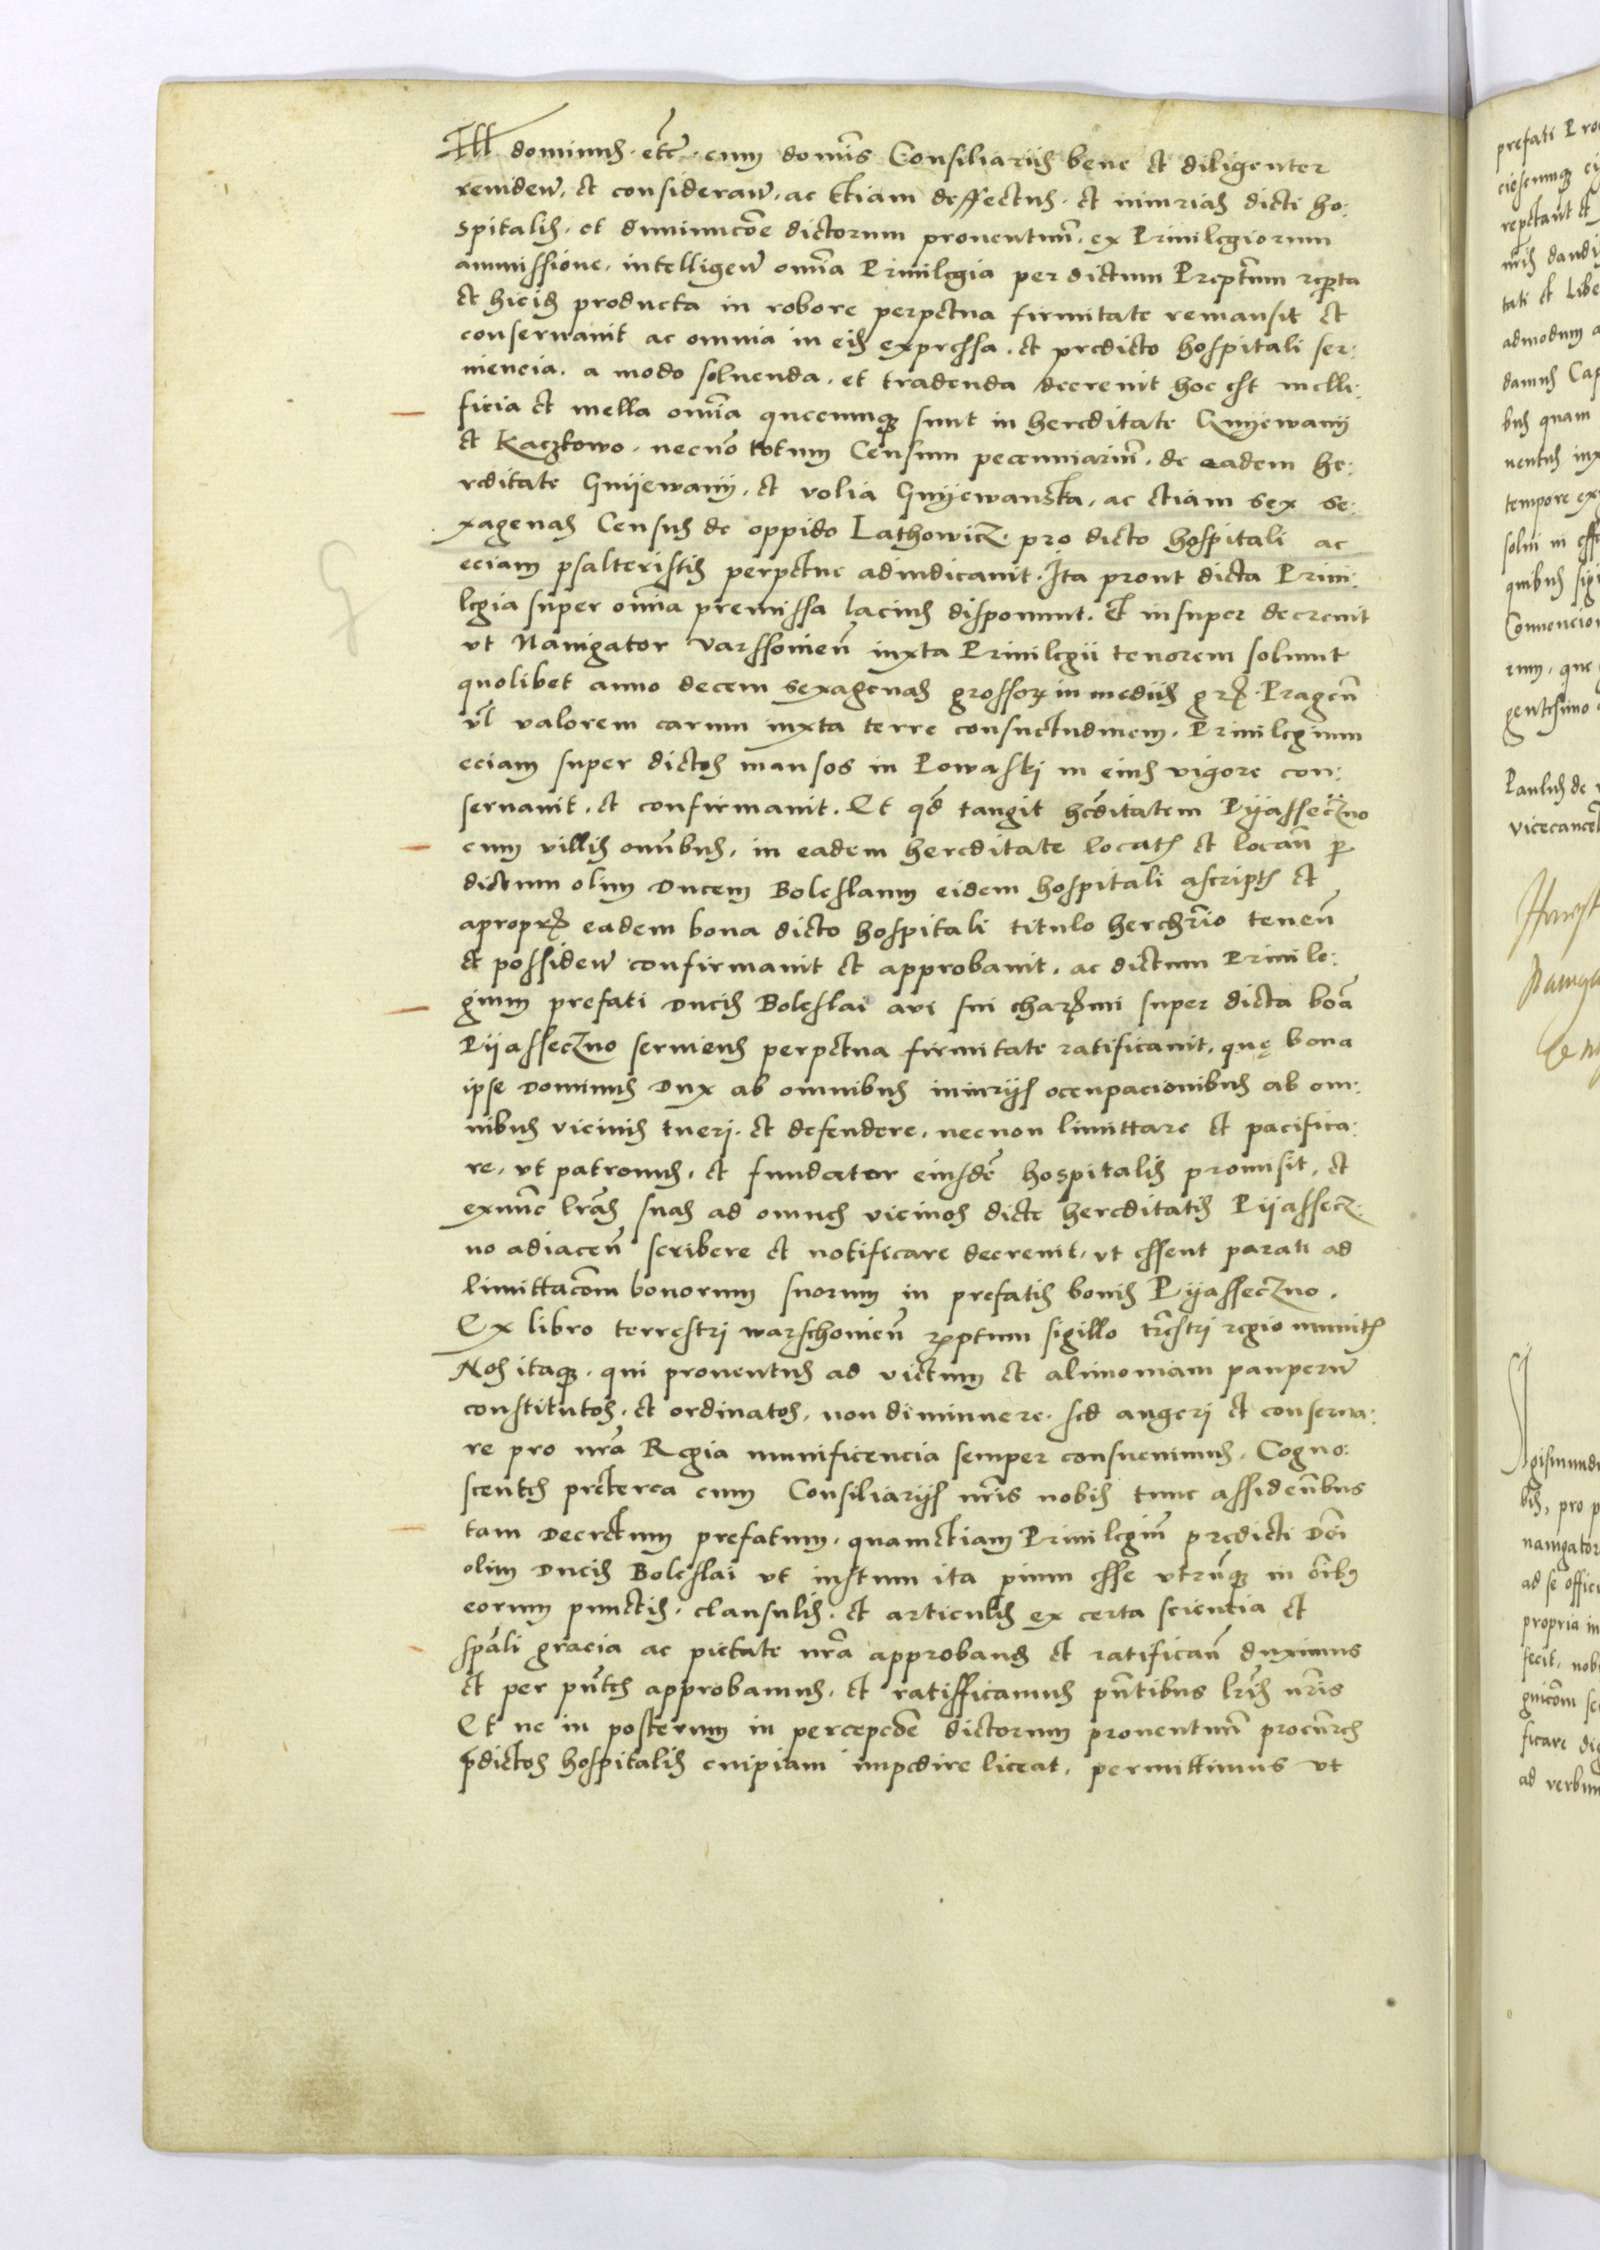 Ill dominus etc̄ cum domīs Consiliariis bene et diligenter
revideñ. et considerañ. ac etiam deffectus. et iniurias dicti ho:
spitalis. et diminucōe dictorum proventuum̄. ex Privilegiorum
ammissione. intelligeñ om̄ia Privilegia per dictum Preptum rep̄ta
et hicids producta in robore perpetua firmitate remansit et
conservavit ac omnia in eis expressa. et predicto hospitali ser:
viencia. a modo solvenda. et tradenda decrevit hoc est melli:
ficia et mella om̄ia quecumq; sunt in hereditate Gnyewany
et Kaczkowo. necnō totum Censum pecuniariū. de eadem he:
reditate Gnyewany. et volia Gnyewanska. ac etiam sex se:
xagenas Census de oppido Lathowicz. pro dicto hospitali ac
eciam psalteristis perpetue adiudicavit. Ita prout dicta Privi:
legia super om̄ia premissa lacius disponunt. Et insuper decrevit
vt Navigator Varssovieñ iuxta Privilegii tenorem solvunt
quolibet anno decem sexagenas grossorꝝ in mediis grꝭ. Pragen̄
vl̄ valorem earum iuxta terre consuetudinem. Privilegium
eciam super dictos mansos in Powaski in eius vigore con:
servavit. et confirmavit. Et qd̄ tangit hēditatem Pyasseczno
cum villis omnībus. in eadem hereditate locatꝭ et locan̄ p̱
dictum olim Ducem Boleslaum eidem hospitali ascriptꝭ et
aproprꝭ eadem bona dicto hospitali titulo heredr̄io teneñ
et possideñ confirmavit et approbavit. ac dictum Privile:
gium prefati Ducis Boleslai avi sui charꝭimi super dicta boā
Pyasseczno serviens perpetua firmitate ratificavit. quę bona
ipse Dominus Dux ab omnibus iniuriis occupacionibus ab om:
nibus vicinis tueri. et defendere. necnon limittare et pacifica:
re. vt patronus. et fundator eiusdē hospitalis promisit. et
exnunc lr̄as suas ad omnes vicinos dicte hereditatis Pyassecz:
no adiaceñ scribere et notificare decrevit. vt essent parati ad
limittacōm bonorum suorum in prefatis bonis Pyasseczno.
Ex libro terrestri warschovieñ rēptum sigillo tr̄estri regio munitꝭ
Nos itaq;. qui proventus ad victum et alimoniam pauperū
constitutos. et ordinatos. non diminuere. sed augeri et conserva:
re pro nr̄a Regia munificencia semper consuevimus. Cogno:
scentes preterea cum Consiliariis nr̄is nobis tunc assidentībus
tam Decretum prefatum. quametiam Privilegiū predicti Dn̄i
olim Ducis Boleslai vt iustum ita pium esse vtrūq; in oībꝯ
eorum punctis. clausulis. et articulis ex certa sciencia et
spāli gracia ac pietate nr̄a approband et ratifican̄ duximus
et per pn̄tes approbamus. et ratifficamus pn̄tibus lr̄is nr̄is
Et ne in posterum in percepcōe dictorum proventuum̄ procūres
p̄dictos hospitalis cuipiam impedire liceat. permittimus vt